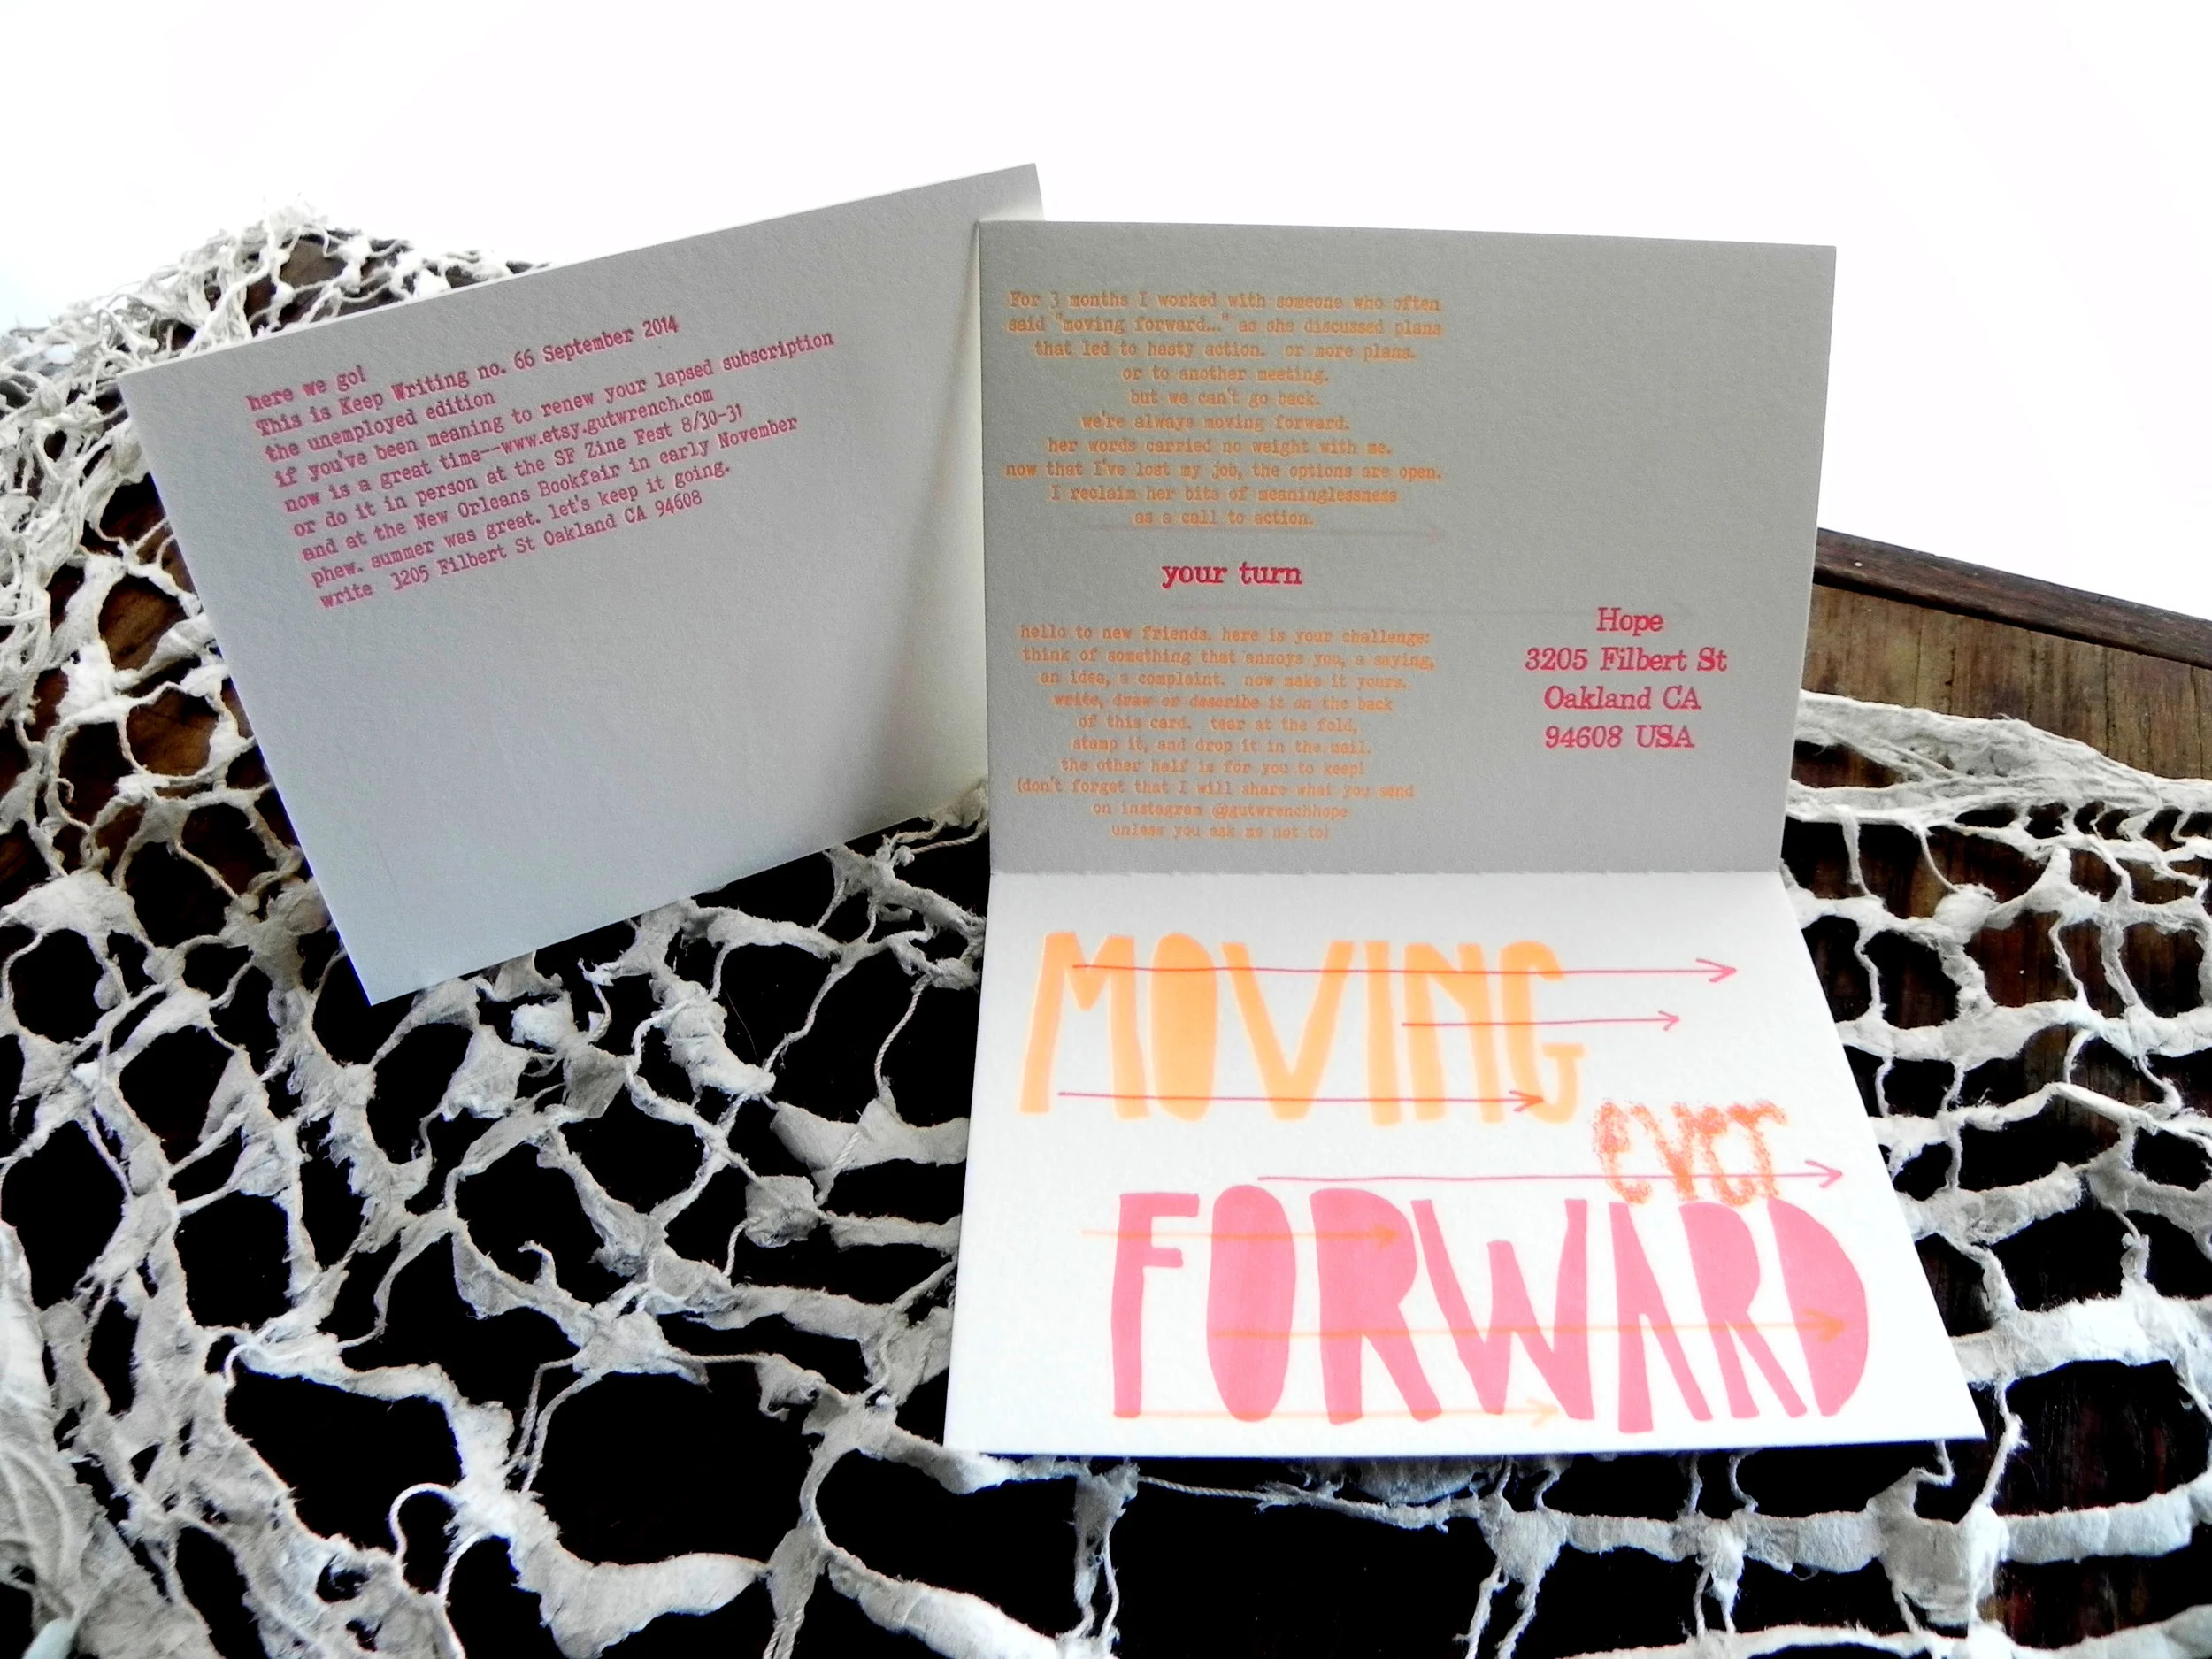 here we go!
This is Keep Writing no. 66 September 2014
the unemployed edition
if you've been meaning to renew your lapsed subscription
now is a great time--www.etsy.gutwrench.com
or do it in person at the SF Zine Fest 8/30-31
and at the New Orleans Bookfair in early November
phew. summer was great. let's keep it going.
write 3205 Filbert St Oakland CA 94608
For 3 months I worked with someone who often
said "moving forward..." as she discussed plans
that led to hasty action. or more plans.
or to another meeting.
but we can't go back.
we're always moving forward.
her words carried no weight with me.
now that I've lost my job, the options are open.
I reclaim her bits of meaninglessness
as a call to action.
your turn
hello to new friends. here is your challenge:
think of something that annoys you, a saying,
an idea, a complaint. now make it yours.
write, draw or describe it on the back
of this card. tear at the fold,
stamp it, and drop it in the mail.
the other half is for you to keep!
(don't forget that I will share what you send
on instagram @gutwrenchhope
unless you ask me not to)
Hope
3205 Filbert St
Oakland CA
94608 USA
MOVING
ever
FORWARD